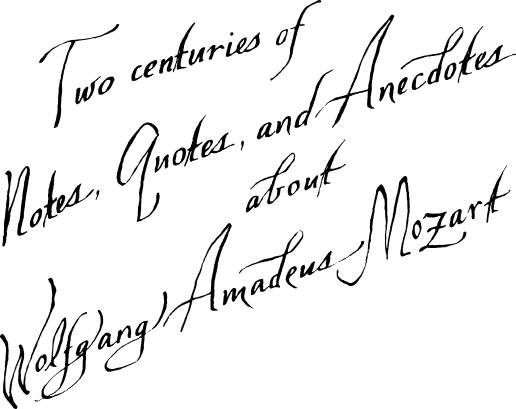 Two centuries of
Notes, Quotes, and Anecdotes
about
Wolfgang Amadeus Mozart